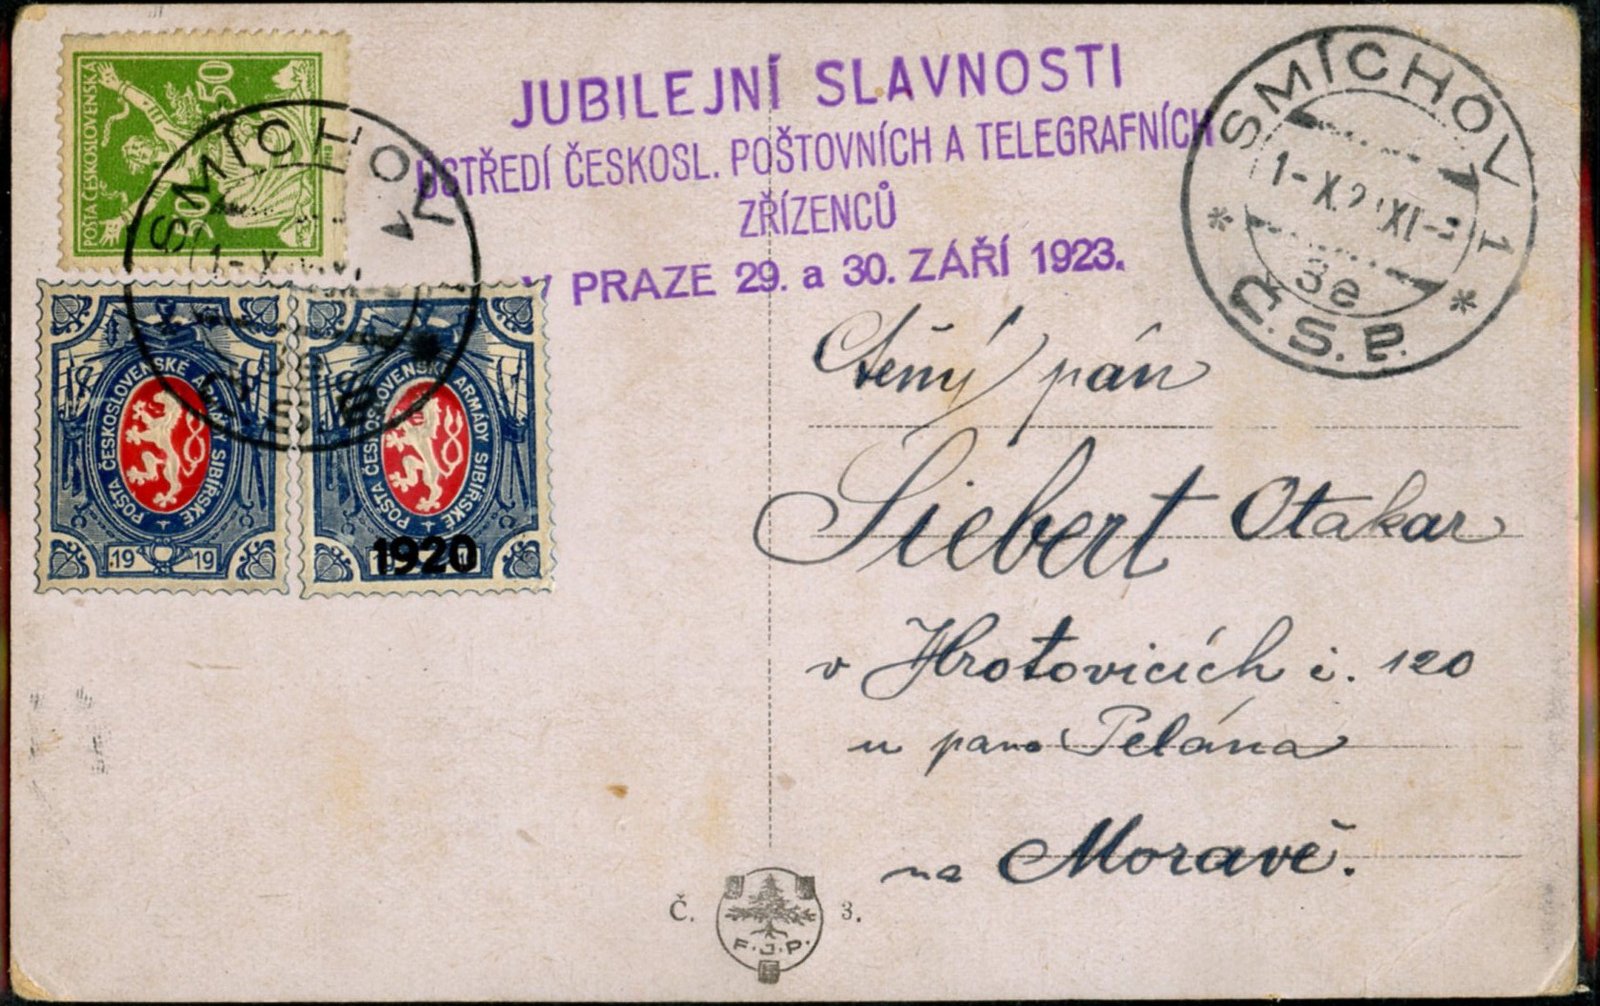 POŠTA ČESKOSLOVENSKÁ
50
50
SMÍCHOV
JUBILEJNÍ SLAVNOSTI
ÚSTŘEDÍ ČESKOSL. POŠTOVNÍCH A TELEGRAFNÍCH
ZŘÍZENCŮ
V PRAZE 29. a 30. ZÁŘÍ 1923.
SMÍCHOV 1
1-X.2 XI-
3e
* Č.S.P. *
POŠTA ČESKOSLOVENSKÉ ARMÁDY SIBIŘSKÉ
19 19
POŠTA ČESKOSLOVENSKÉ ARMÁDY SIBIŘSKÉ
1920
Ctěný pán
Siebert Otakar
v Hrotovicích č. 120
u pana Pelána
na Moravě.
Č. 3.
F.J.P.